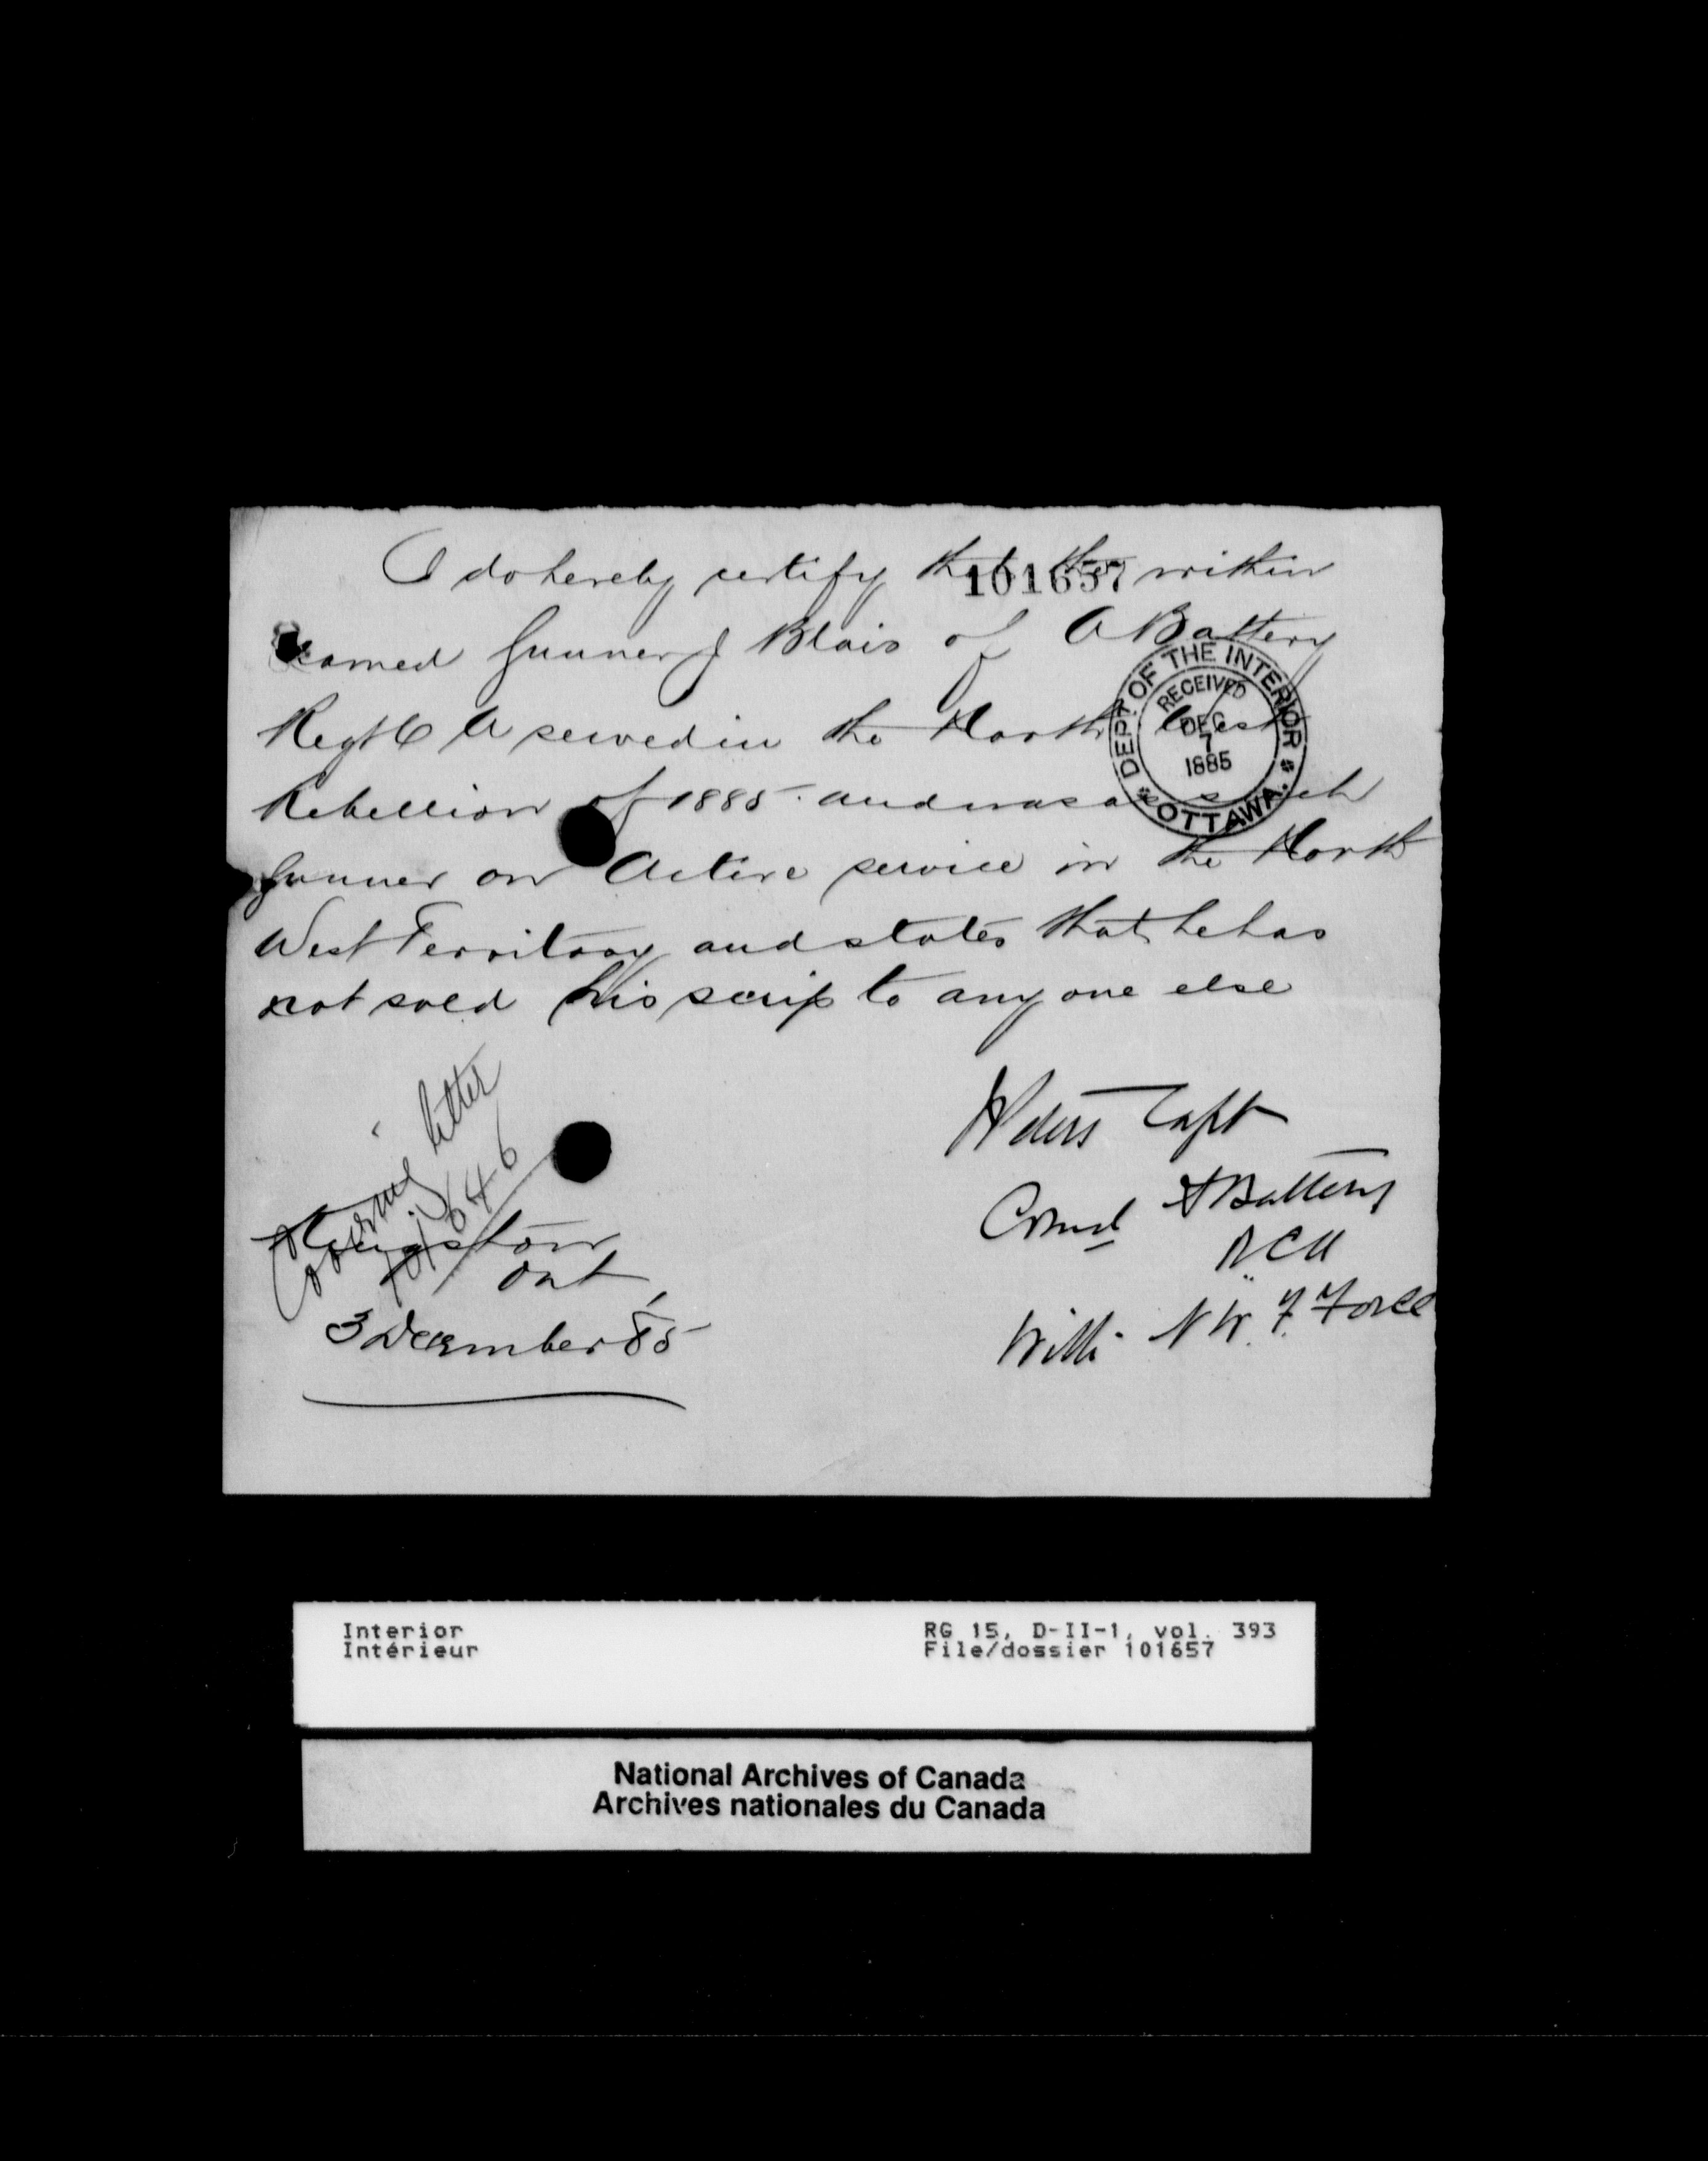 I do hereby certify that the within
101657
named Gunner J Blais of A Battery
Regt C A served in the North West
DEPT. OF THE INTERIOR
RECEIVED
DEC
7
1885
OTTAWA.
Rebellion of 1885. and was as such
Gunner on Active service in the North
West Territory and states that he has
not sold his scrip to any one else
Covering letter
101646
Kingston
Ont,
3 December 85
Peters Capt
Comd A Battery
RCA
With N W F. Force
Interior
Intérieur
RG 15, D-II-1, vol. 393
File/dossier 101657
National Archives of Canada
Archives nationales du Canada